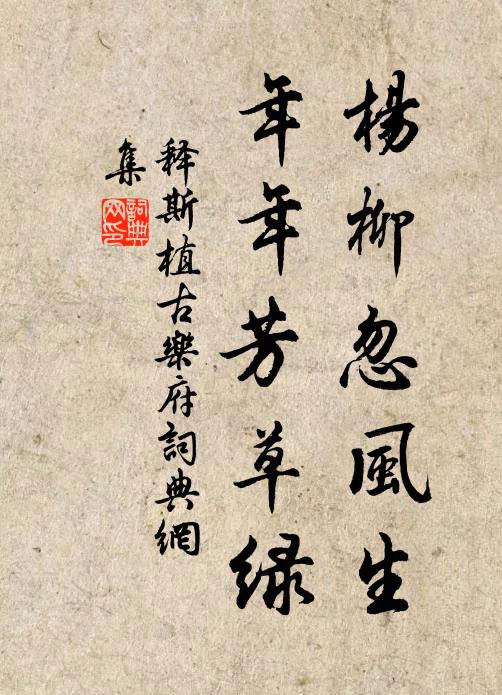 楊柳忽風生
年年芳草绿
释斯植古樂府詞典網
集
詞典網印